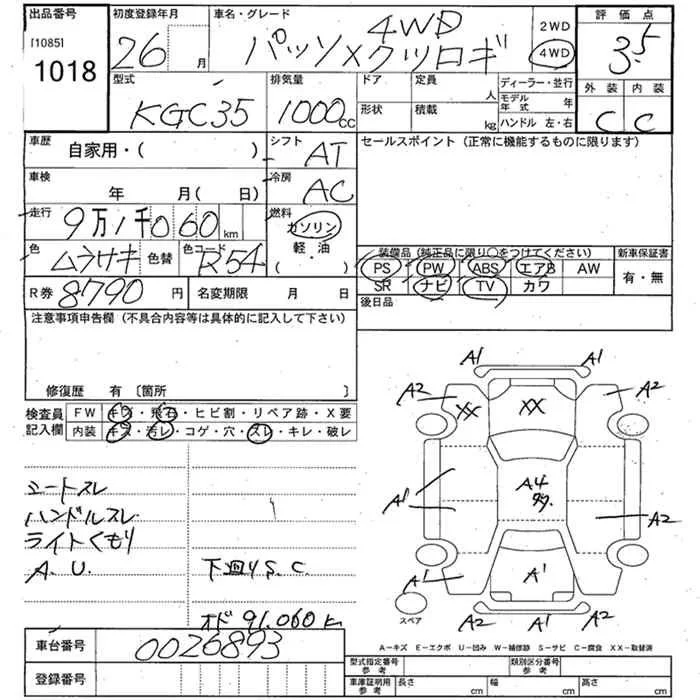 出品番号 初度登録年月 車名・グレード 2WD 評価点
[1085] 1018 26 月 4WD パッソ×クツロギ 4WD 3.5
型式 排気量 ドア 定員 人 ディーラー・並行 外装 内装
KGC35 1000cc 形状 積載 kg モデル年式 年 ハンドル 左・右 C C
車歴 自家用・( ) シフト AT セールスポイント (正常に機能するものに限ります)
車検 年 月( 日) 冷房 AC
走行 9万1千060km 燃料 ガソリン
色 ムラサキ 色替 色コード R54 軽・油 ( ・ ) 装備品 (純正品に限り○をつけてください) 新車保証書
PS PW ABS エアB AW 有・無
SR ナビ TV カワ
R券 8790 円 名変期限 月 日 後日品
注意事項申告欄 (不具合内容等は具体的に記入して下さい)
修復歴 有 〔箇所 〕
検査員記入欄 FW キズ・飛石・ヒビ割・リペア跡・X要
内装 キズ・汚レ・コゲ・穴・スレ・キレ・破レ
シートスレ
ハンドルスレ
ライトくもり
A.U. 下廻りS.C.
オド 91.060k
A1 A1
A2 XX XX A2
A1 A4 A2
A1 A1
スペア A2 A1 A2
A-キズ E-エクボ U-凹み W-補修跡 S-サビ C-腐食 XX-取替済
車台番号 0026893
登録番号
型式指定番号 参考 類別区分番号 参考
車庫証明用 参考 長さ cm 幅 cm 高さ cm